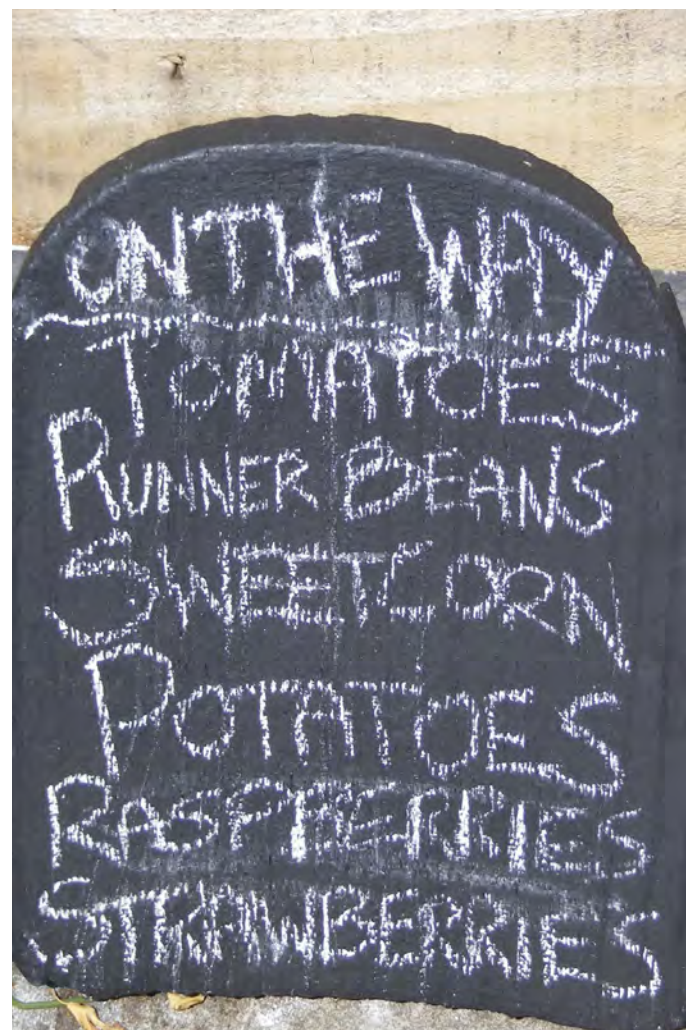 ON THE WAY
TOMATOES
RUNNER BEANS
SWEETCORN
POTATOES
RASPBERRIES
STRAWBERRIES